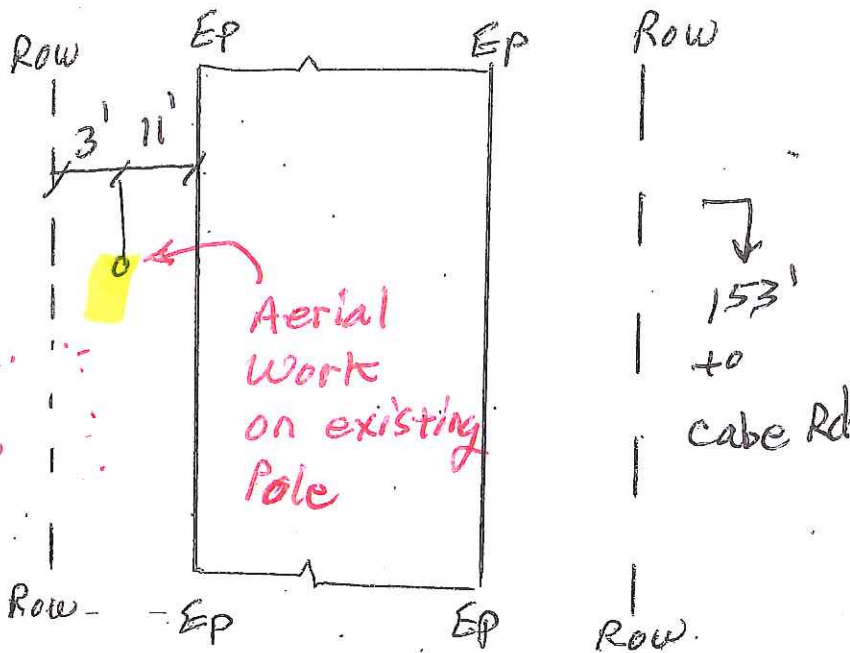 Row
Ep
Ep
Row
3'
11'
Aerial
Work
on existing
Pole
153'
to
cabe Rd
Row
Ep
Ep
Row